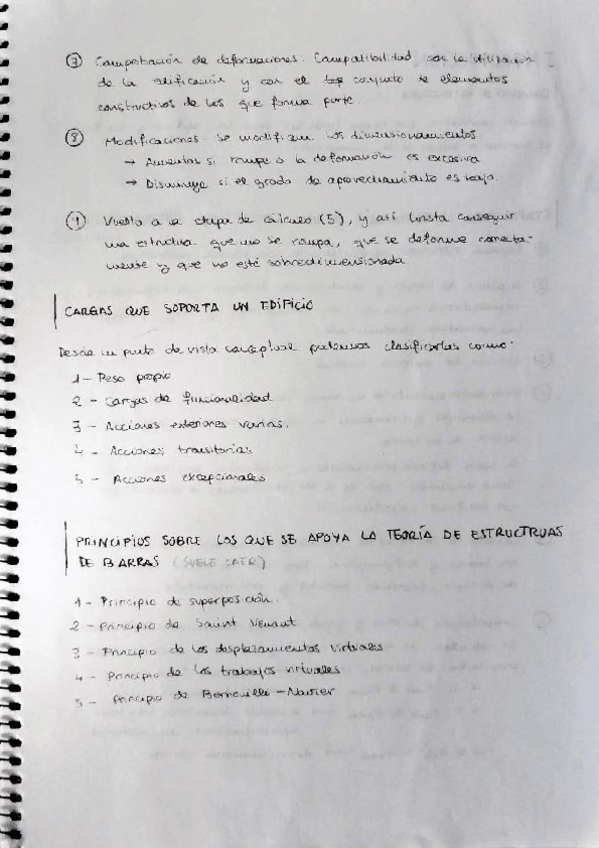 ⑦ Comprobación de deformaciones: Compatibilidad con la utilización
de la edificación y con el conjunto de elementos
constructivos de los que forma parte.
⑧ Modificaciones. Se modifican los dimensionamientos
→ Aumentas si rompe o la deformación es excesiva
→ Disminuye si el grado de aprovechamiento es bajo.
⑨ Vuelta a la etapa de cálculo (5), y así hasta conseguir
una estructura que no se rompa, que se deforme correcta-
mente y que no esté sobredimensionada.
CARGAS QUE SOPORTA UN EDIFICIO
Desde un punto de vista conceptual podemos clasificarlas como:
1 - Peso propio
2 - Cargas de funcionalidad
3 - Acciones exteriores varias.
4 - Acciones transitorias
5 - Acciones excepcionales
PRINCIPIOS SOBRE LOS QUE SE APOYA LA TEORÍA DE ESTRUCTRUAS
DE BARRAS (SUELE CAER)
1 - Principio de superposición.
2 - Principio de Saint Venant
3 - Principio de los desplazamientos virtuales
4 - Principio de los trabajos virtuales
5 - Principio de Bernouilli - Navier